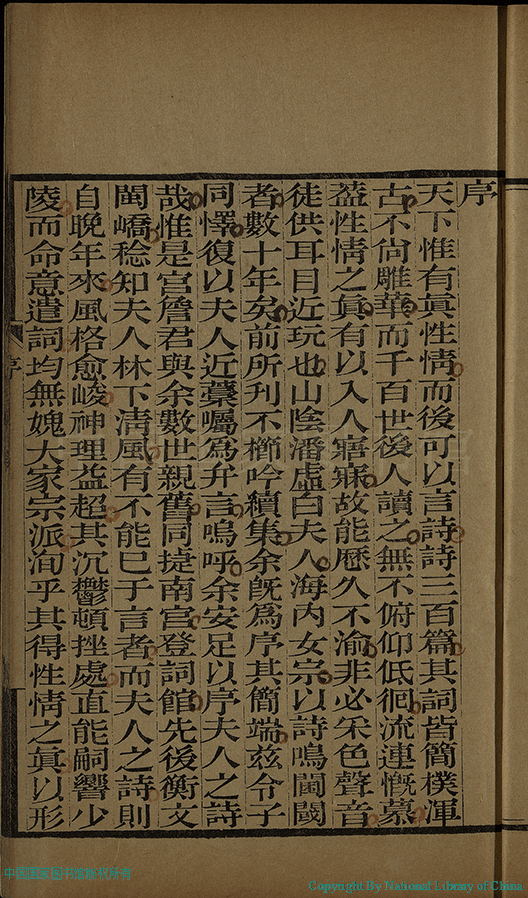 序
天下惟有眞性情而後可以言詩詩三百篇其詞皆簡樸渾
古不尙雕華而千百世後人讀之無不俯仰低徊流連慨慕
葢性情之眞有以入人寤寐故能歷久不渝非必采色聲音
徒供耳目近玩也山陰潘虛白夫人海內女宗以詩鳴閫閾
者數十年矣前所刊不櫛吟續集余旣爲序其簡端茲令子
同懌復以夫人近藁囑爲弁言嗚呼余安足以序夫人之詩
哉惟是宮詹君與余數世親舊同捷南宮登詞館先後衡文
閩嶠稔知夫人林下淸風有不能已于言者而夫人之詩則
自晚年來風格愈峻神理益超其沉鬱頓挫處直能嗣響少
陵而命意遣詞均無媿大家宗派洵乎其得性情之眞以形
序
中国国家图书馆版权所有
Copyright By National Library of China